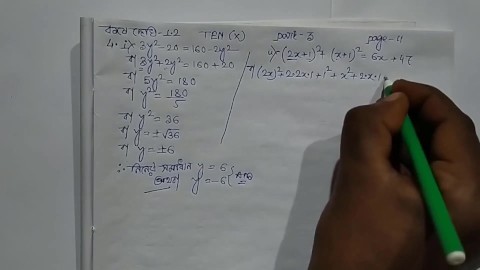 কষে দেখি-1.2 TEN (X) part-3 page-4
4. i) 3y²-20=160-2y²
বা 3y²+2y²=160+20
বা 5y²=180
বা y²=180/5
বা y²=36
বা y=±√36
বা y=±6
∴ নির্ণেয় সমাধান y=6
অথবা y=-6 Ans
ii) (2x+1)²+(x+1)²=6x+47
বা (2x)²+2·2x·1+1²+x²+2·x·1